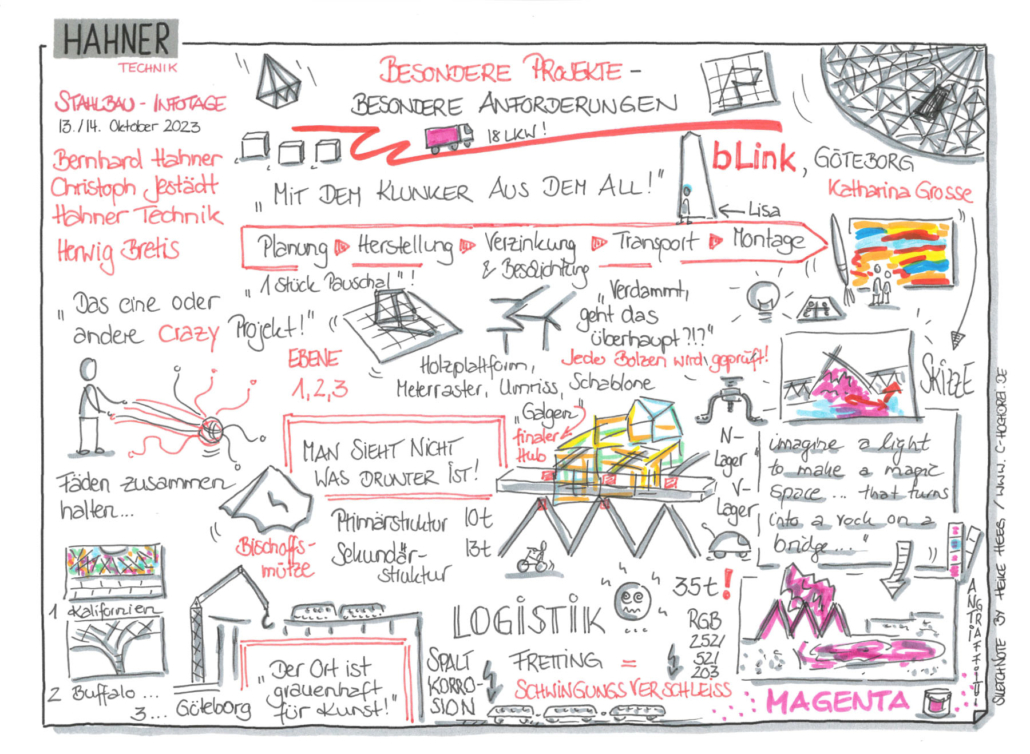 HAHNER
TECHNIK
STAHLBAU - INFOTAGE
13./14. Oktober 2023
Bernhard Hahner
Christoph Jestädt
Hahner Technik
Herwig Bretis
BESONDERE PROJEKTE -
BESONDERE ANFORDERUNGEN
18 LKW!
„MIT DEM KLUNKER AUS DEM ALL!"
bLink, GÖTEBORG
Katharina Grosse
Lisa
Planung Herstellung Verzinkung Transport Montage
& Beschichtung
„1 Stück Pauschal"!
„Das eine oder
andere crazy Projekt!"
„Verdammt,
geht das
überhaupt?!?"
Jeder Bolzen wird geprüft!
EBENE
1, 2, 3
Holzplattform,
Meterraster, Umriss, Schablone
SKIZZE
„Galgen"
finaler
Hub
MAN SIEHT NICHT
WAS DRUNTER IST!
N-
Lager
V-
Lager
imagine a light
to make a magic
space ... that turns
into a rock on a
bridge...."
Fäden zusammen
halten...
Bischoffs-
mütze
Primärstruktur 10t
Sekundär- 13t
struktur
1 Kalifornien
2 Buffalo ...
3... Göteborg
„Der Ort ist
grauenhaft
für Kunst!"
LOGISTIK
35t!
RGB
252/
52/
203
SPALT
KORRO-
SION
FRETTING =
SCHWINGUNGSVERSCHLEISS
MAGENTA
ANTIGRAFFITI!
QUEICHNOTE BY HEIKE HEEG / WWW.C-HOCHDREI.DE